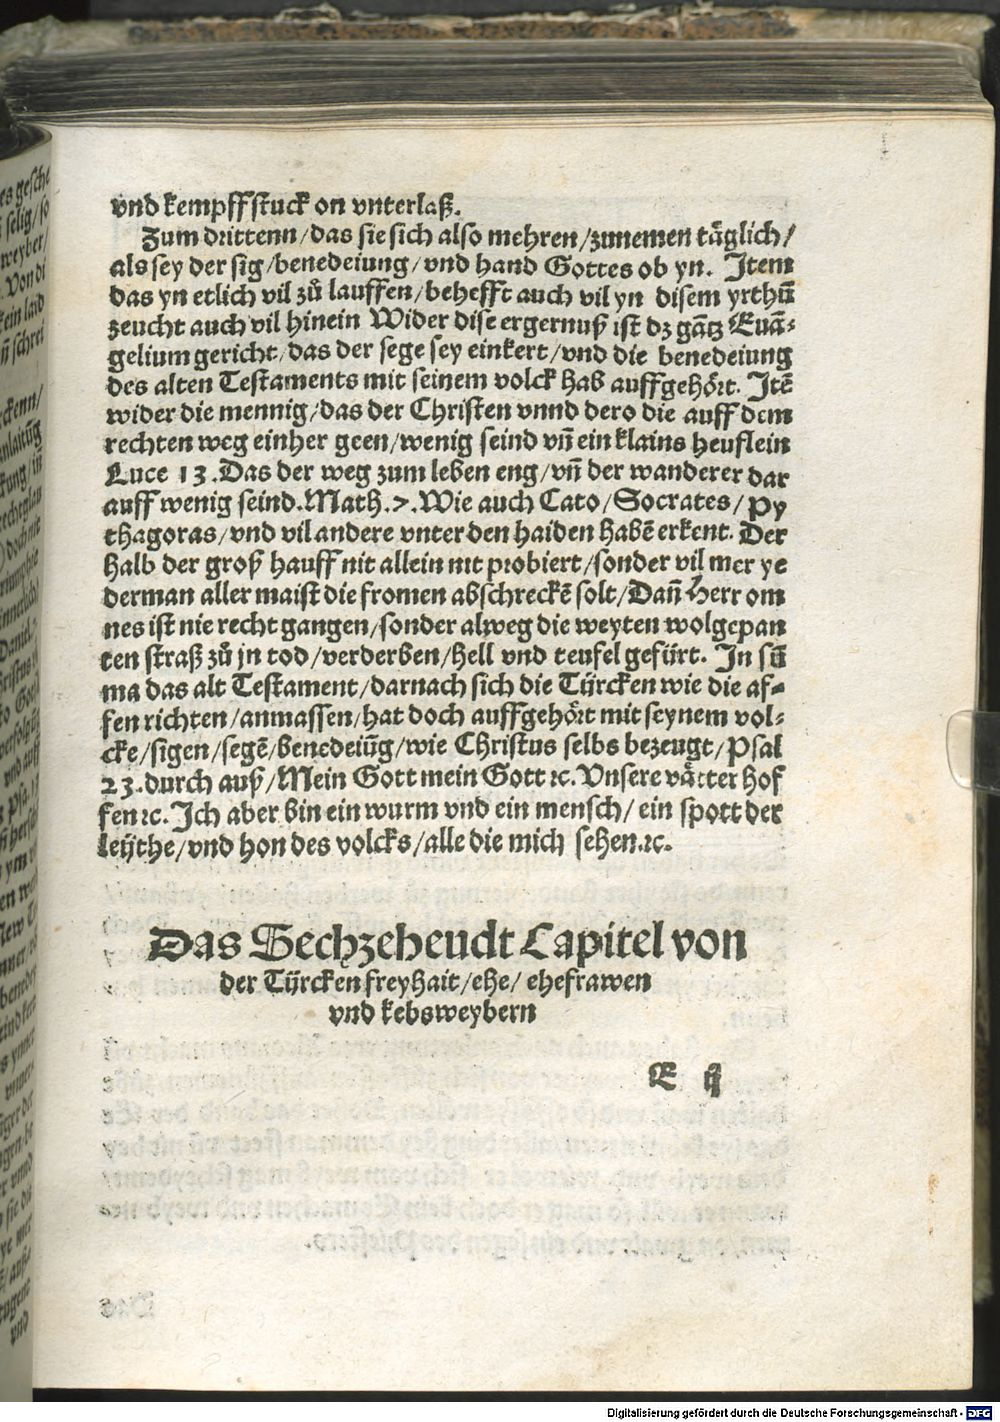 vnd kempffstuck on vnterlaß.
Zum drittenn/das sie sich also mehren/zunemen täglich/
als sey der sig/benedeiung/vnd hand Gottes ob yn. Item
das yn etlich vil zů lauffen/behefft auch vil yn disem yrthū
zeucht auch vil hinein Wider dise ergernuß ist dz gātz Euā⸗
gelium gericht/das der sege sey einkert/vnd die benedeiung
des alten Testaments mit seinem volck hab auffgehört. Itē
wider die mennig/das der Christen vnnd dero die auff dem
rechten weg einher geen/wenig seind vn̄ ein klains heuflein
Luce 13. Das der weg zum leben eng/vn̄ der wanderer dar
auff wenig seind. Math. 7. Wie auch Cato/Socrates/Py
thagoras/vnd vil andere vnter den haiden habē erkent. Der
halb der groß hauff nit allein nit probiert/sonder vil mer ye
derman aller maist die fromen abschreckē solt/Dan̄ Herr om
nes ist nie recht gangen/sonder alweg die weyten wolgepan
ten straß zů jn tod/verderben/hell vnd teufel gefürt. In sū
ma das alt Testament/darnach sich die Türcken wie die af⸗
fen richten/anmassen/hat doch auffgehört mit seynem vol⸗
cke/sigen/segē/benedeiūg/wie Christus selbs bezeugt/Psal
23. durch auß/Mein Gott mein Gott ꝛc. Vnsere vätter hof
fen ꝛc. Ich aber bin ein wurm vnd ein mensch/ein spott der
leüthe/vnd hon des volcks/alle die mich sehen.ꝛc.
Das Sechzehendt Capitel von
der Türcken freyhait/ehe/ehefrawen
vnd kebsweybern
E ij
Digitalisierung gefördert durch die Deutsche Forschungsgemeinschaft - DFG